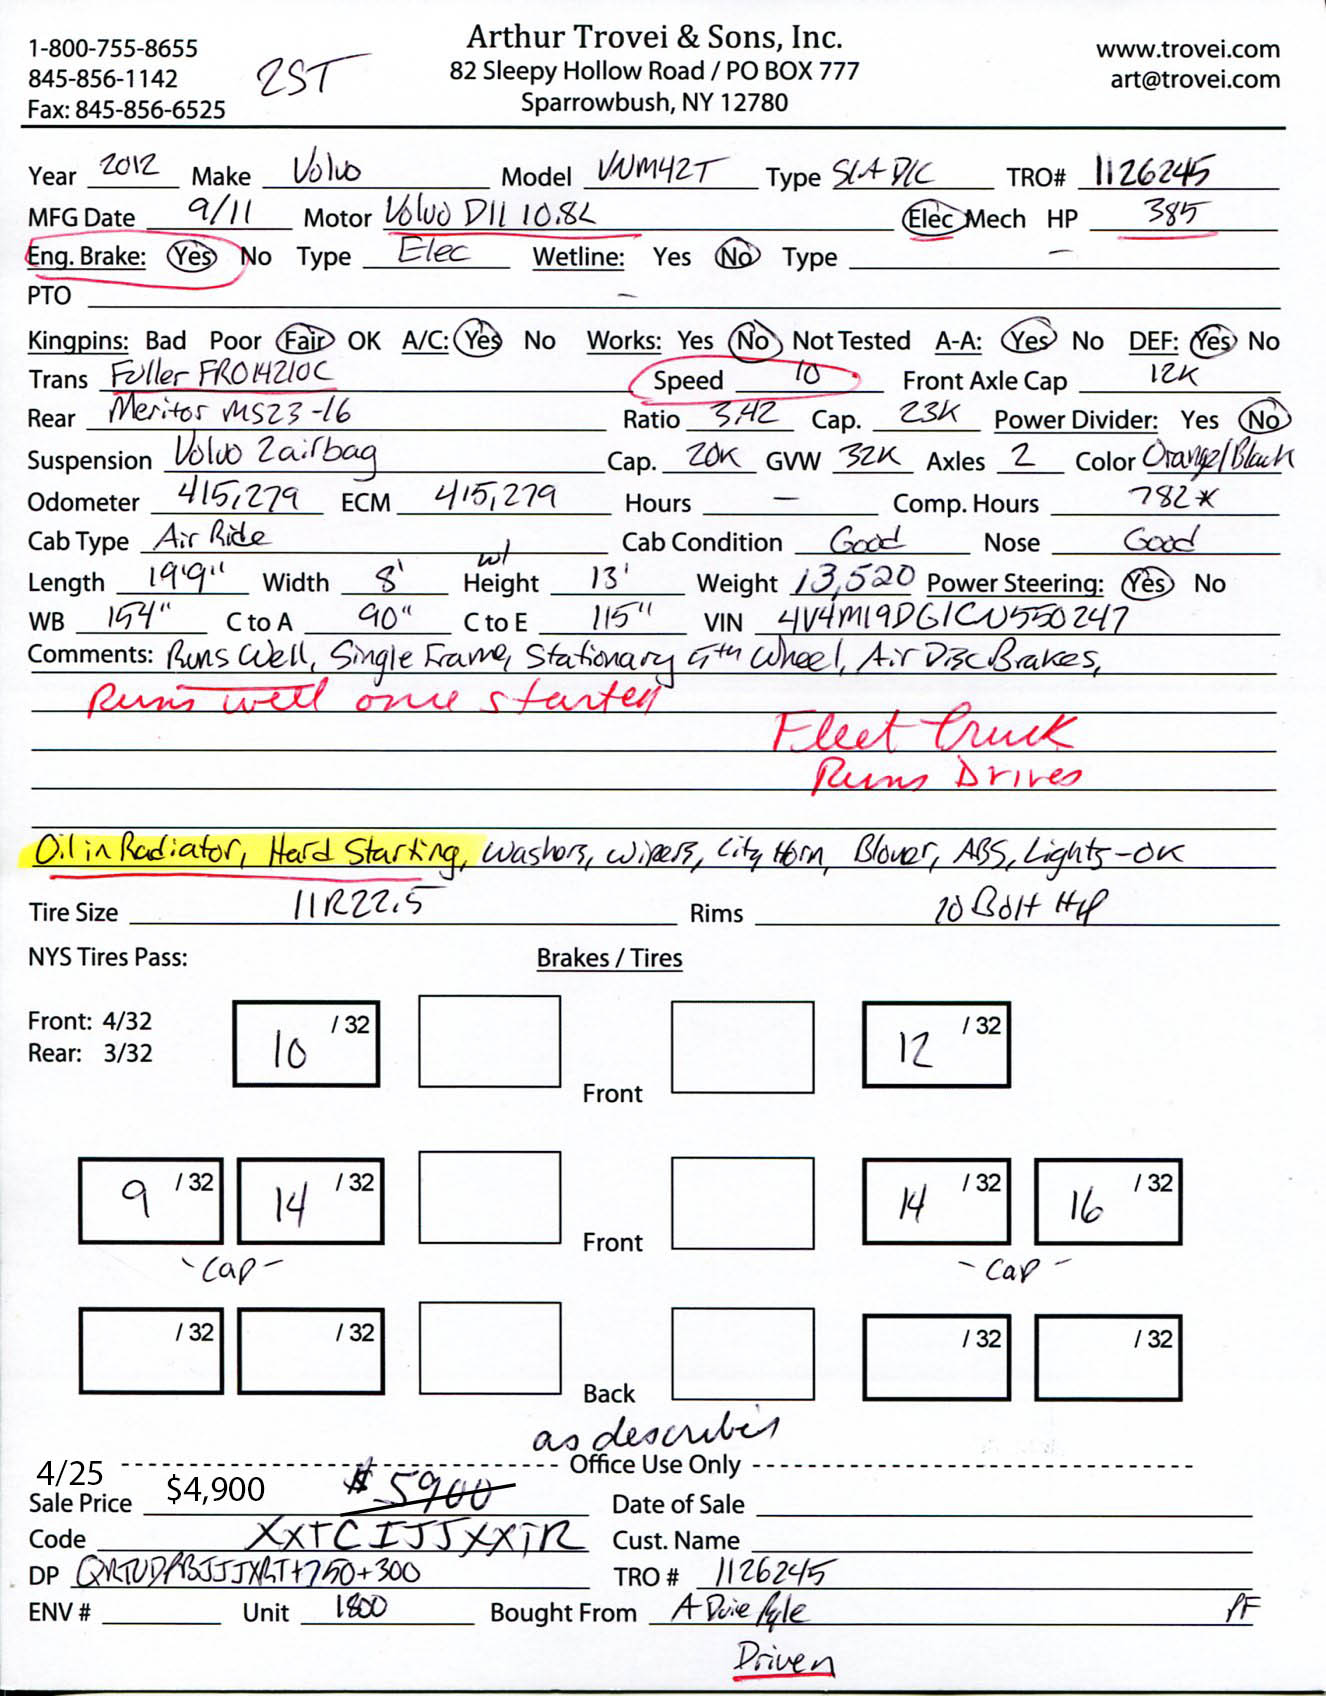 1-800-755-8655
845-856-1142
Fax: 845-856-6525
2ST
Arthur Trovei & Sons, Inc.
82 Sleepy Hollow Road / PO BOX 777
Sparrowbush, NY 12780
www.trovei.com
art@trovei.com
Year 2012 Make Volvo Model VNM42T Type S/A D/C TRO# 1126245
MFG Date 9/11 Motor Volvo D11 10.8L Elec Mech HP 385
Eng. Brake: Yes No Type Elec Wetline: Yes No Type —
PTO —
Kingpins: Bad Poor Fair OK A/C: Yes No Works: Yes No Not Tested A-A: Yes No DEF: Yes No
Trans Fuller FRO14210C Speed 10 Front Axle Cap 12K
Rear Meritor MS23-16 Ratio 3.42 Cap. 23K Power Divider: Yes No
Suspension Volvo 2airbag Cap. 20K GVW 32K Axles 2 Color Orange/Black
Odometer 415,279 ECM 415,279 Hours — Comp. Hours 782*
Cab Type Air Ride Cab Condition Good Nose Good
Length 19'9" Width 8' w/ Height 13' Weight 13,520 Power Steering: Yes No
WB 154" C to A 90" C to E 115" VIN 4V4M19DG1CN550247
Comments: Runs Well, Single Frame, Stationary 5th Wheel, Air Disc Brakes,
Runs well once started
Fleet Truck
Runs Drives
Oil in Radiator, Hard Starting, Washers, Wipers, City Horn, Blower, ABS, Lights-OK
Tire Size 11R22.5 Rims 10 Bolt HP
NYS Tires Pass: Brakes / Tires
Front: 4/32
Rear: 3/32
10 /32 12 /32
Front
9 /32 14 /32 14 /32 16 /32
Front
-Cap- -Cap-
/32 /32 /32 /32
Back
as describes
Office Use Only
4/25
Sale Price $4,900 $5900 Date of Sale
Code XXTCIJJXXTR Cust. Name
DP +750+300 TRO # 1126245
ENV # Unit 1800 Bought From A Duie Pyle PF
Driven